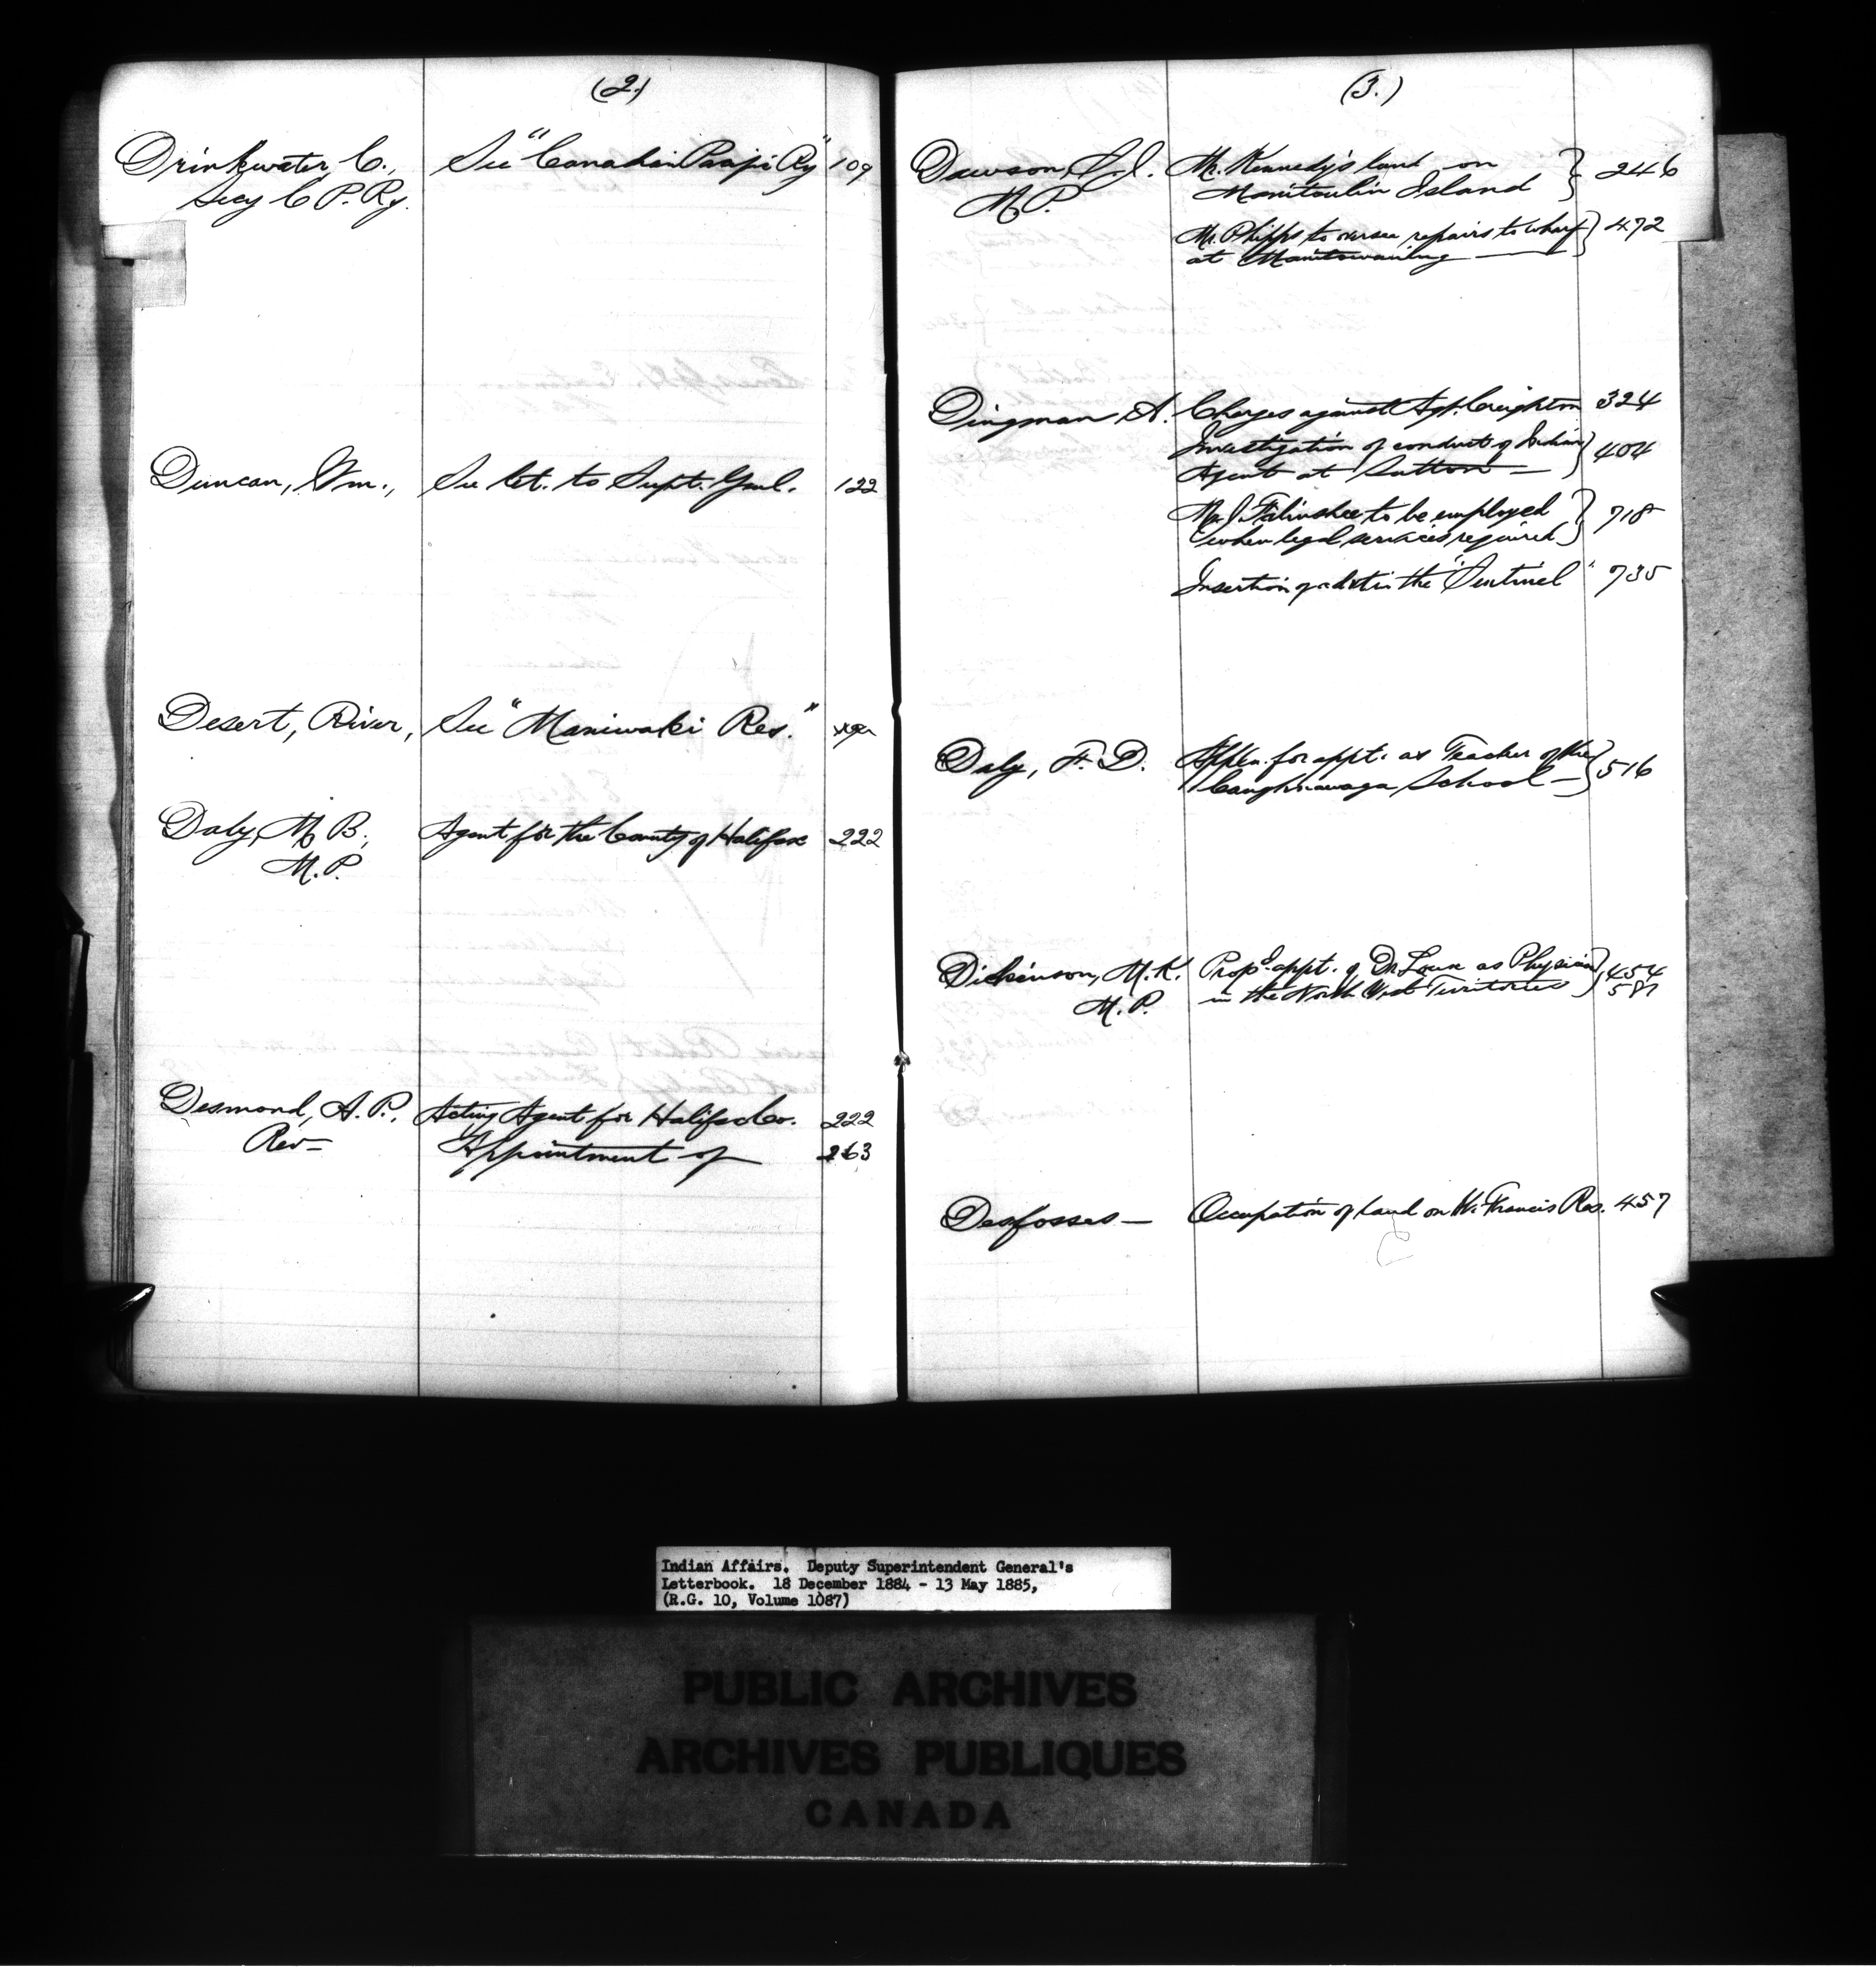 (2.)
Drinkwater, C., See "Canadian Pacific Ry" 109
Secy C. P. Ry.
Duncan, Wm., See let. to Supt. Genl. 122
Desert, River, See "Maniwaki Res."
Daly, M. B., Agent for the County of Halifax 222
M. P.
Desmond, A. P., Acting Agent for Halifax Co. 222
Rev— Appointment of 263
(3.)
Dawson, S. J. Mr. Kennedy's land on 246
M. P. Manitoulin Island
Mr. Phipps to oversee repairs to wharf 472
at Manitowaning
Dingman, A. Charges against Agt. Creighton 324
Investigation of conduct of Indian 404
Agent at Sutton —
Mr. J. to be employed 718
when legal services required
Insertion of advt. in the "Sentinel" 735
Daly, F. D. Appln. for appt. as Teacher of the 516
Caughnawaga School —
Dickinson, M. K. Propd. appt. of Dr. as Physician 454
M. P. in the North West Territories
Desfosses — Occupation of land on St. Francis Res. 457
Indian Affairs. Deputy Superintendent General's
Letterbook. 18 December 1884 - 13 May 1885,
(R.G. 10, Volume 1087)
PUBLIC ARCHIVES
ARCHIVES PUBLIQUES
CANADA